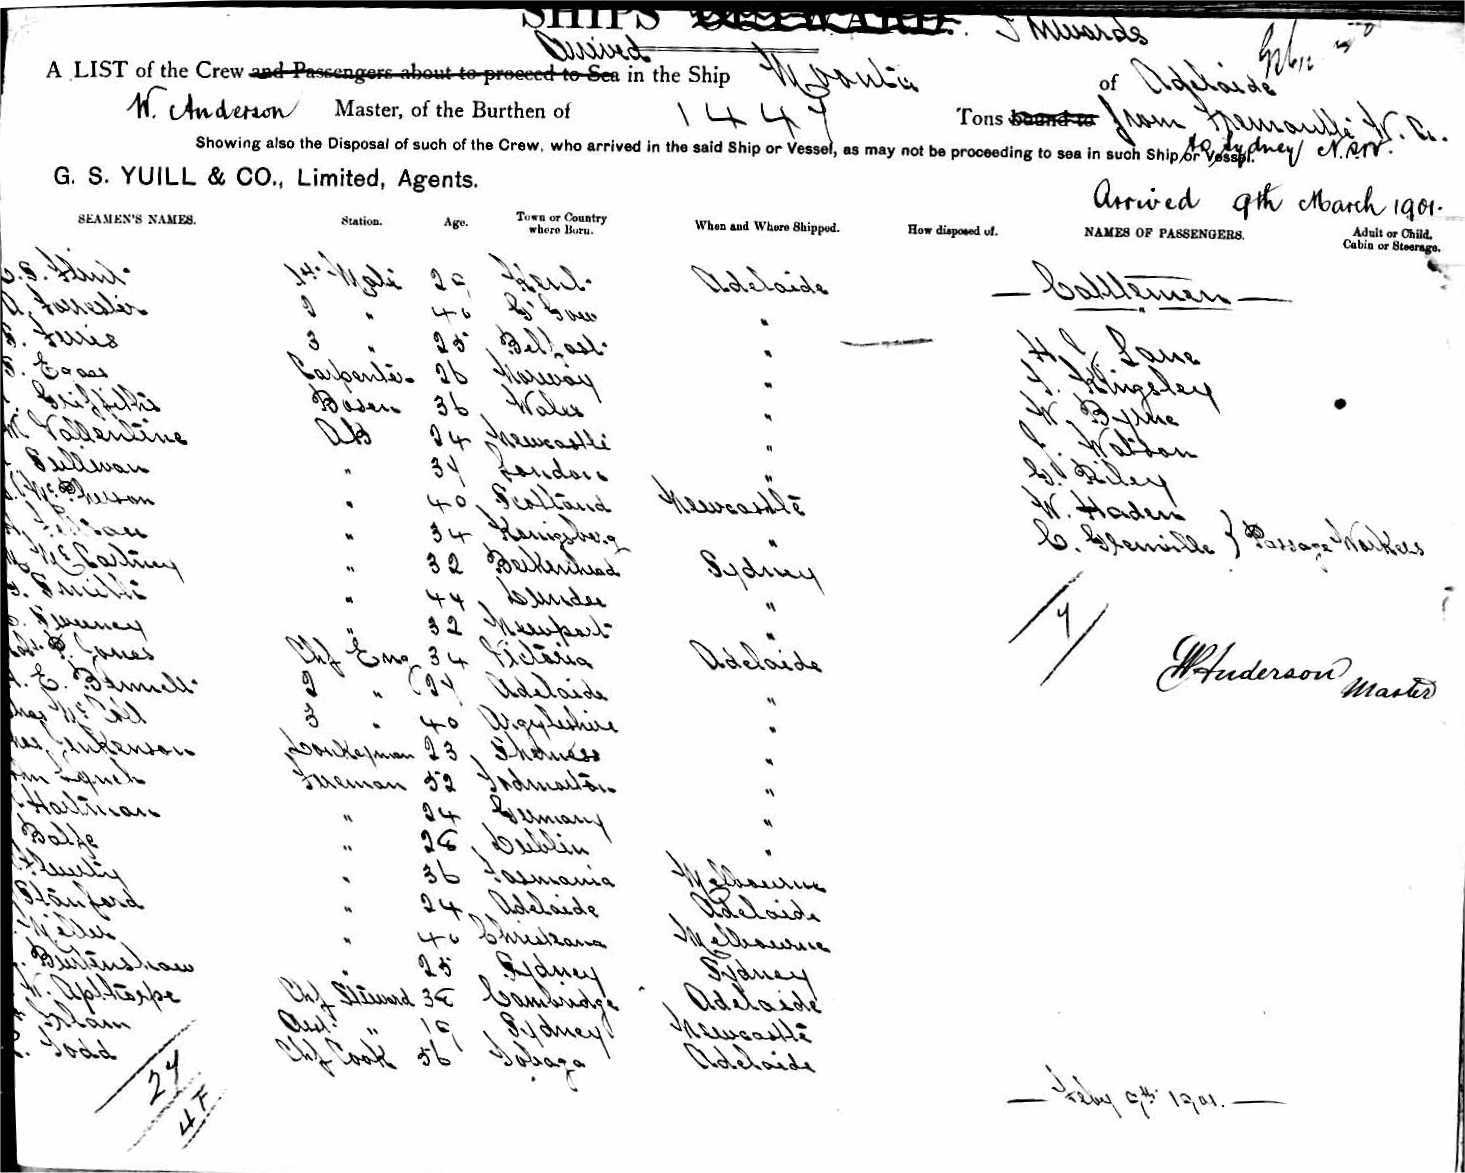 SHIPS INWARDS
Arrived
A LIST of the Crew and Passengers about to proceed to Sea in the Ship Moonta of Adelaide
W. Anderson Master, of the Burthen of 1447 Tons bound to from Fremantle W. A.
to Sydney N.S.W.
Showing also the Disposal of such of the Crew, who arrived in the said Ship or Vessel, as may not be proceeding to sea in such Ship or Vessel.
G. S. YUILL & CO., Limited, Agents.
Arrived 9th March 1901.
SEAMEN'S NAMES. Station. Age. Town or Country where Born. When and Where Shipped. How disposed of. NAMES OF PASSENGERS. Adult or Child, Cabin or Steerage.
Flint 1st Mate 29 Kent Adelaide
Forrester 2 " 40 "
Ferris 3 " 25 Belfast "
Carpenter 26 Norway "
Griffiths Bosen 36 Wales "
Vallentine AB 24 Newcastle "
Sullivan " 34 London "
McPherson " 40 Scotland Newcastle
" 34 Konigsberg "
McCartney " 32 Berkenhead Sydney
Smith " 44 Dundee "
Sweeney " 32 Newport "
Jones Chf Eng 34 Victoria Adelaide
E. Bennett 2 " 24 Adelaide "
McColl 3 " 40 Argyleshire "
Jenkenson Donkeyman 23 Sheerness "
Lynch Fireman 52 "
Hartman " 24 Germany "
Balfe " 28 Dublin "
" 36 Tasmania Melbourne
Stanford " 24 Adelaide Adelaide
Miller " 40 Christiana Melbourne
Burtenshaw " 25 Sydney Sydney
W. Apthorpe Chf Steward 38 Cambridge Adelaide
Asst " 19 Sydney Newcastle
Todd Chf Cook 56 Tobago Adelaide
27
4 F
Cattlemen
H. J. Lane
Kingsley
W. Byrne
J. Watson
G. Riley
W. Haden
C. Glenville } Passage Workers
7
W Anderson
Master
Feby 9th 1901.